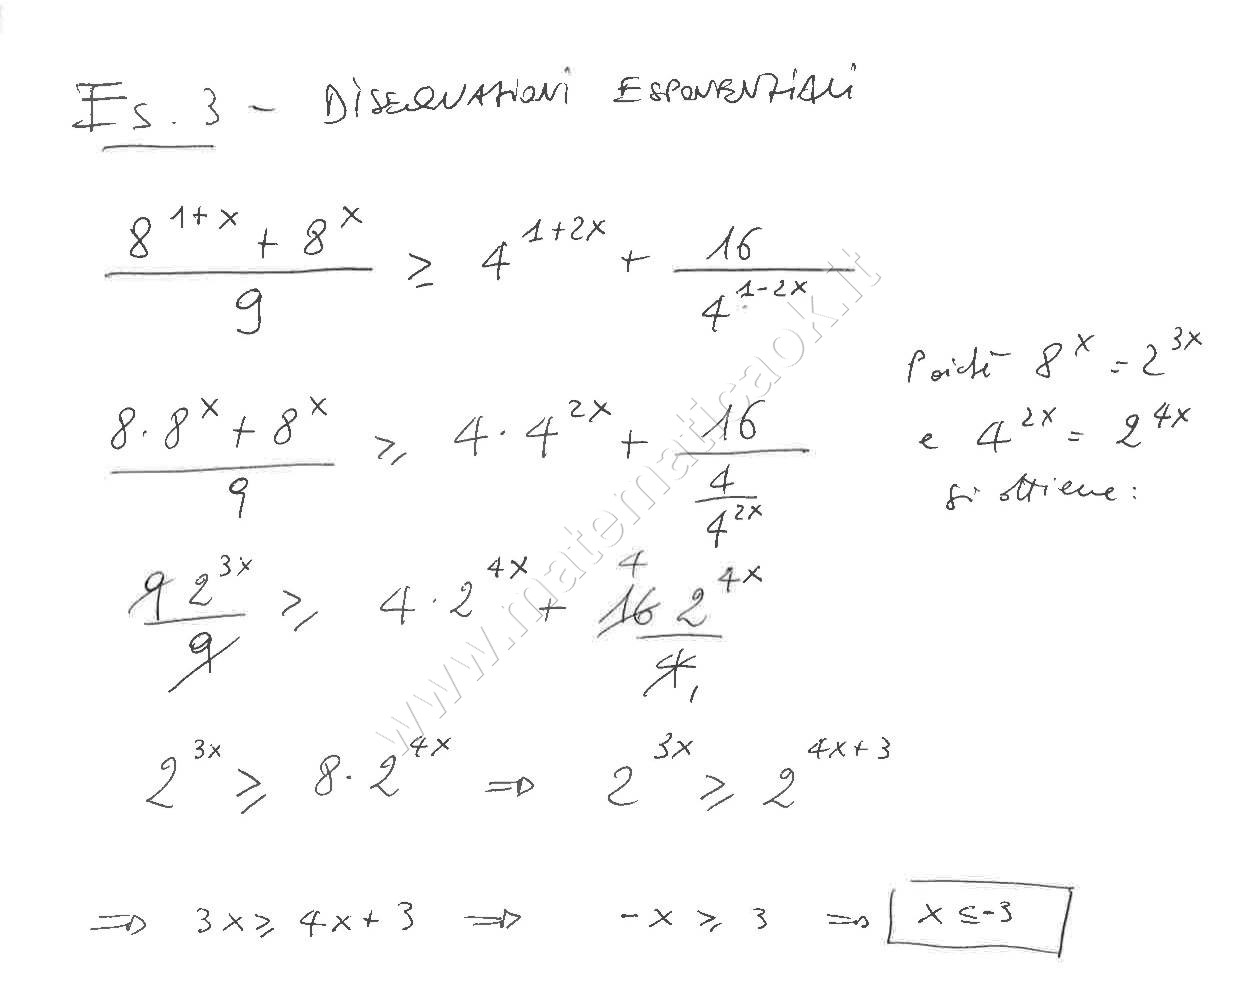 Es. 3 - DISEQUAZIONI ESPONENZIALI
(8^(1+x) + 8^x)/9 ≥ 4^(1+2x) + 16/4^(1-2x)
Poiché 8^x = 2^(3x)
(8·8^x + 8^x)/9 ≥ 4·4^(2x) + 16/(4/4^(2x))
e 4^(2x) = 2^(4x)
si ottiene:
9 2^(3x)/9 ≥ 4·2^(4x) + 4 16 2^(4x)/4 1
2^(3x) ≥ 8·2^(4x) ⇒ 2^(3x) ≥ 2^(4x+3)
⇒ 3x ≥ 4x + 3 ⇒ -x ≥ 3 ⇒ x ≤ -3
www.matematicaok.it